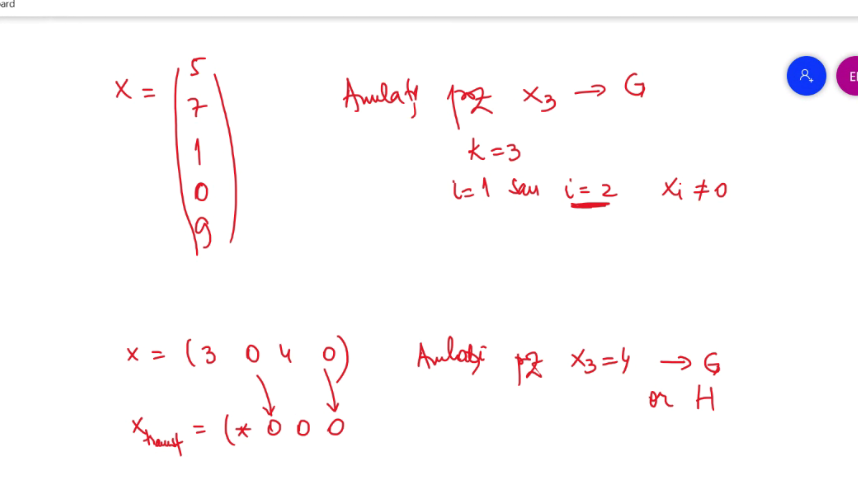 ard
x = (5 7 1 0 9) Anulați poz x₃ → G
k = 3
i=1 sau i=2 xi ≠ 0
EI
x = (3 0 4 0) Anulați poz x₃=4 → G
or H
x transf = (* 0 0 0